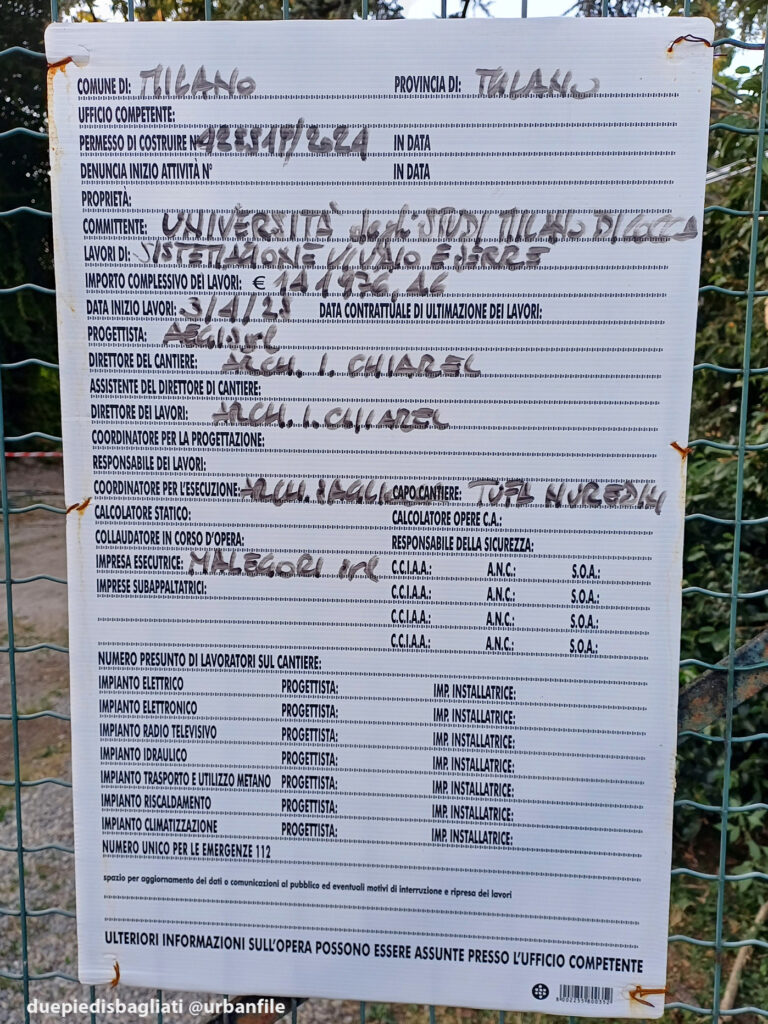 COMUNE DI: MILANO PROVINCIA DI: MILANO
UFFICIO COMPETENTE:
PERMESSO DI COSTRUIRE N° IN DATA
DENUNCIA INIZIO ATTIVITÀ N° IN DATA
PROPRIETÀ:
COMMITTENTE: UNIVERSITÀ degli STUDI MILANO BICOCCA
LAVORI DI: SISTEMAZIONE VIVAIO E SERRE
IMPORTO COMPLESSIVO DEI LAVORI: €
DATA INIZIO LAVORI: DATA CONTRATTUALE DI ULTIMAZIONE DEI LAVORI:
PROGETTISTA: AEGIS srl
DIRETTORE DEL CANTIERE: ARCH. I. CHIAREL
ASSISTENTE DEL DIRETTORE DI CANTIERE:
DIRETTORE DEI LAVORI: ARCH. I. CHIAREL
COORDINATORE PER LA PROGETTAZIONE:
RESPONSABILE DEI LAVORI:
COORDINATORE PER L'ESECUZIONE: ARCH. CAPO CANTIERE: TUFA NUREDIN
CALCOLATORE STATICO: CALCOLATORE OPERE C.A.:
COLLAUDATORE IN CORSO D'OPERA: RESPONSABILE DELLA SICUREZZA:
IMPRESA ESECUTRICE: MALEGORI srl C.C.I.A.A.: A.N.C.: S.O.A.:
IMPRESE SUBAPPALTATRICI: C.C.I.A.A.: A.N.C.: S.O.A.:
C.C.I.A.A.: A.N.C.: S.O.A.:
C.C.I.A.A.: A.N.C.: S.O.A.:
NUMERO PRESUNTO DI LAVORATORI SUL CANTIERE:
IMPIANTO ELETTRICO PROGETTISTA: IMP. INSTALLATRICE:
IMPIANTO ELETTRONICO PROGETTISTA: IMP. INSTALLATRICE:
IMPIANTO RADIO TELEVISIVO PROGETTISTA: IMP. INSTALLATRICE:
IMPIANTO IDRAULICO PROGETTISTA: IMP. INSTALLATRICE:
IMPIANTO TRASPORTO E UTILIZZO METANO PROGETTISTA: IMP. INSTALLATRICE:
IMPIANTO RISCALDAMENTO PROGETTISTA: IMP. INSTALLATRICE:
IMPIANTO CLIMATIZZAZIONE PROGETTISTA: IMP. INSTALLATRICE:
NUMERO UNICO PER LE EMERGENZE 112
spazio per aggiornamento dei dati o comunicazioni al pubblico ed eventuali motivi di interruzione e ripresa dei lavori
ULTERIORI INFORMAZIONI SULL'OPERA POSSONO ESSERE ASSUNTE PRESSO L'UFFICIO COMPETENTE
8 002255 800352
duepiedisbagliati @urbanfile